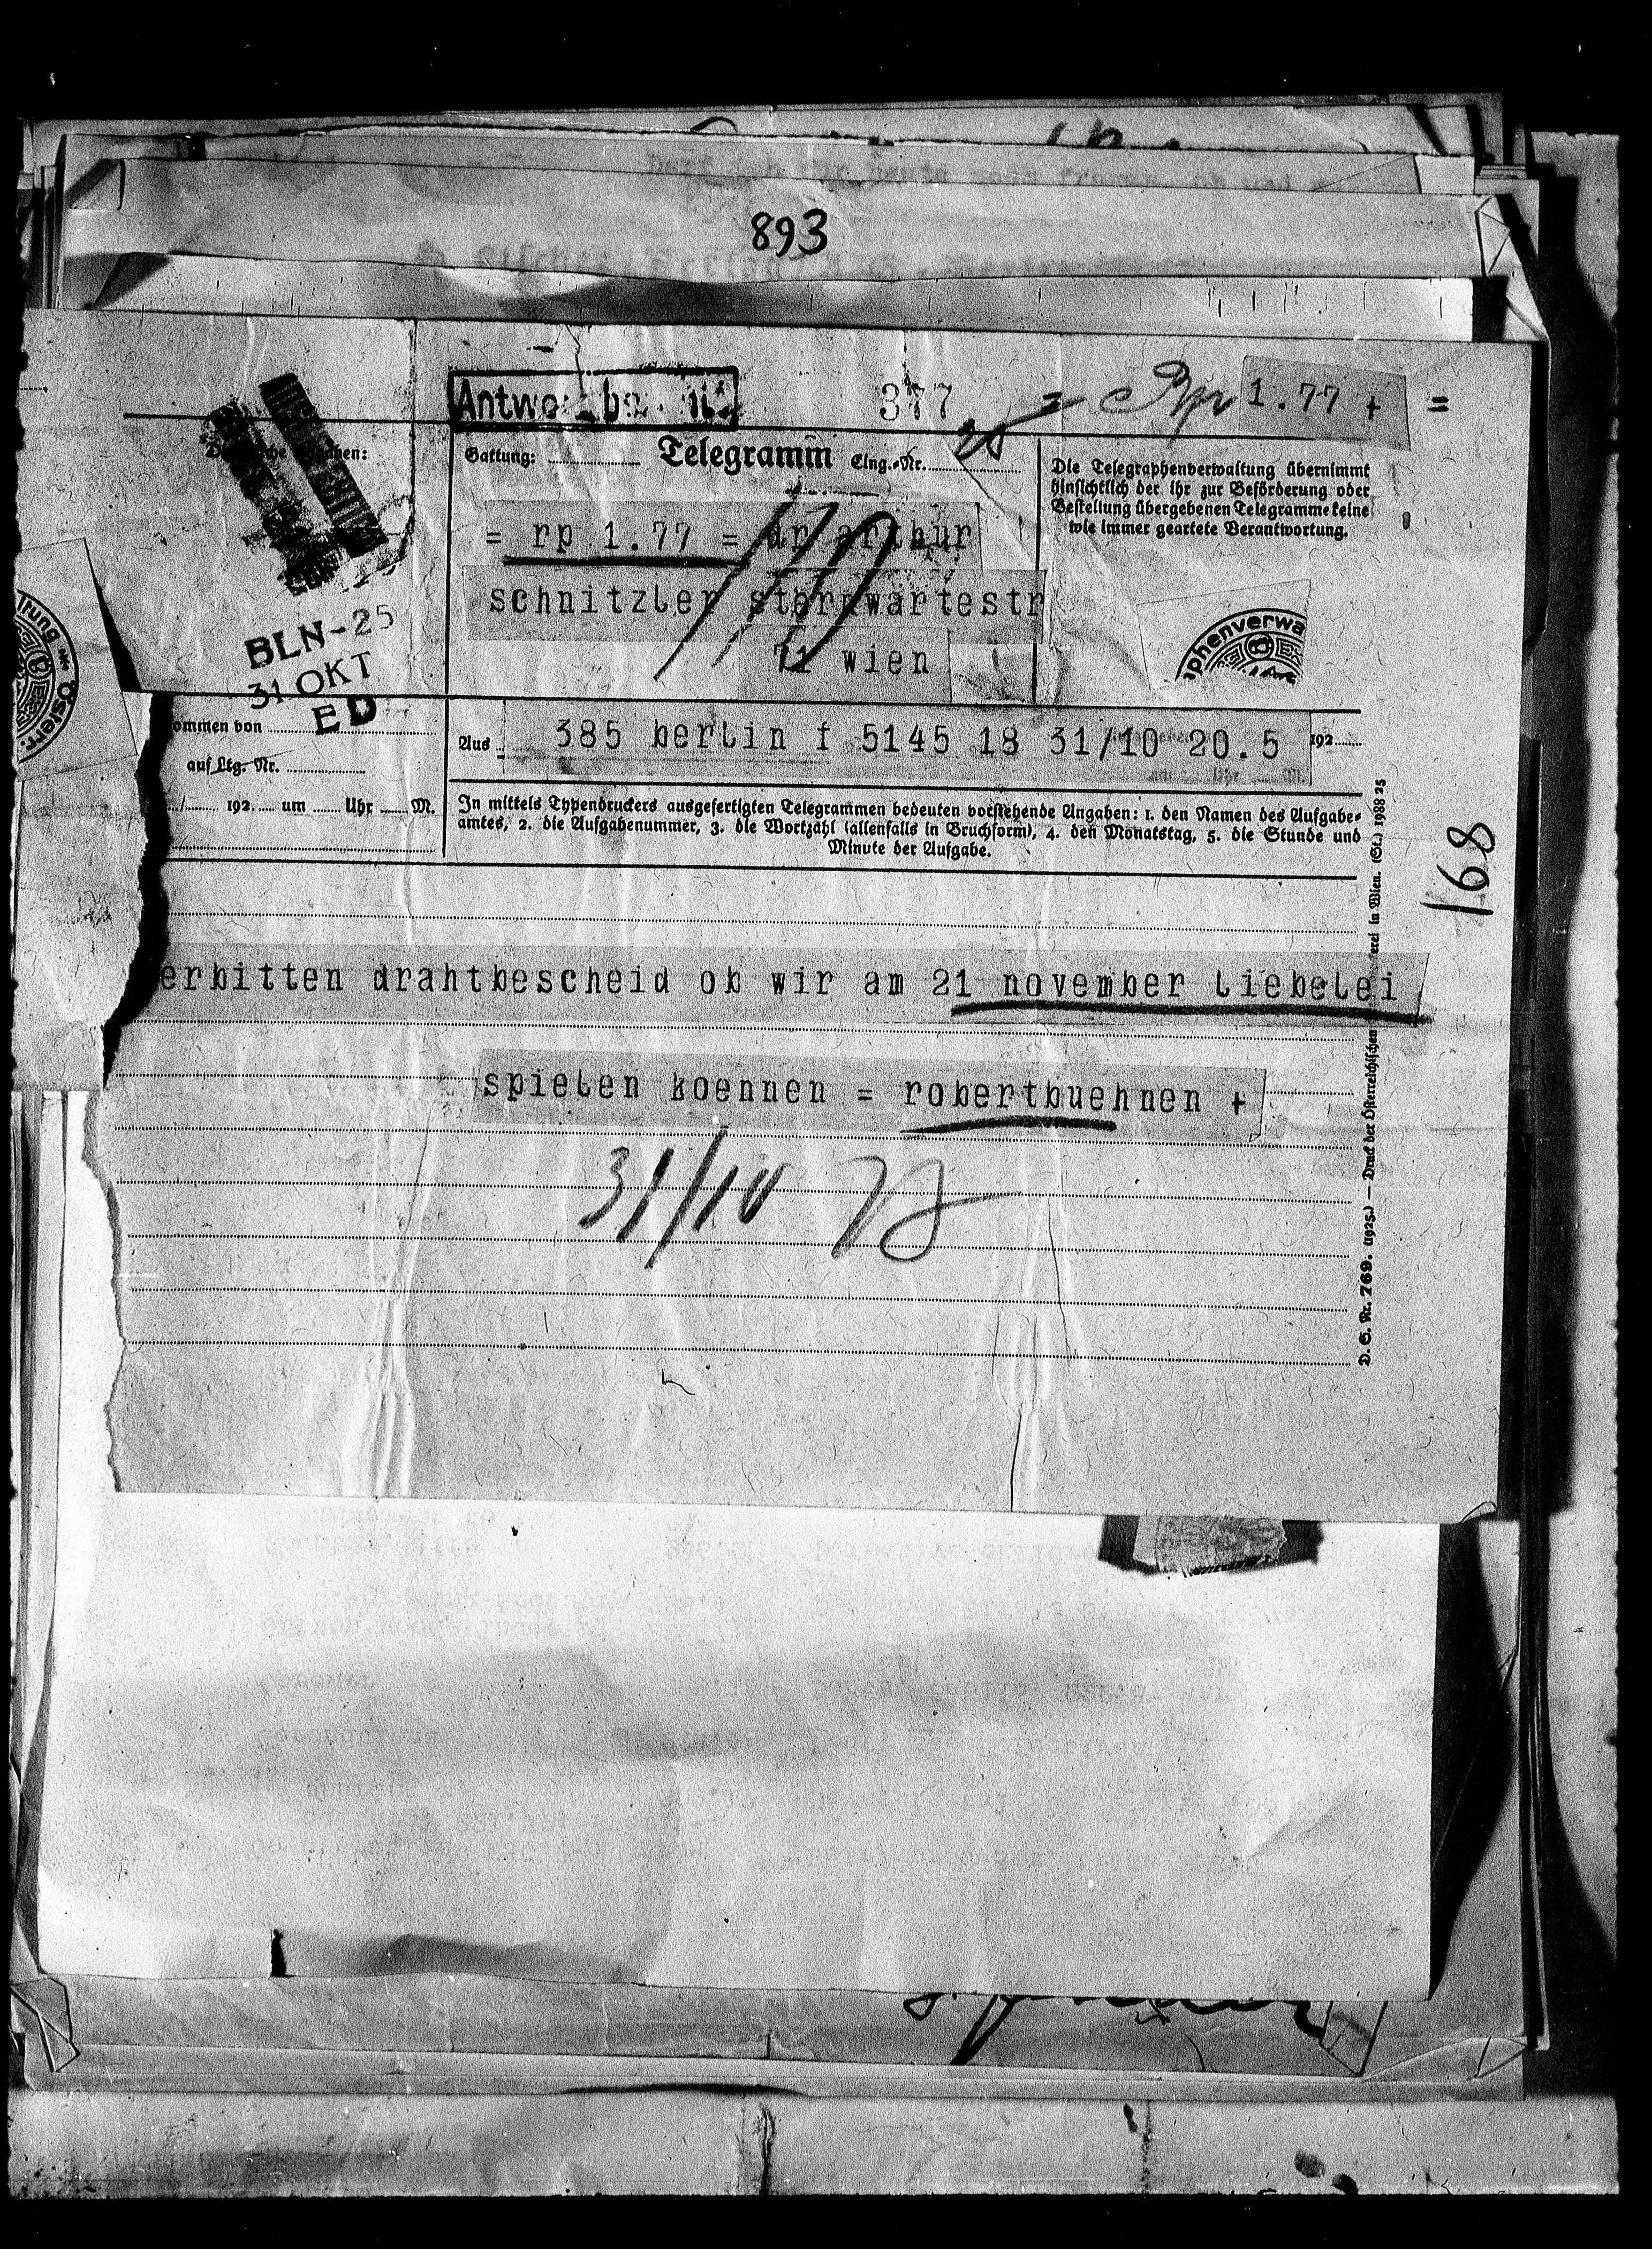 893
377 = Rp 1.77 + =
Gattung: Telegramm Eing.-Nr.
Die Telegraphenverwaltung übernimmt
hinsichtlich der ihr zur Beförderung oder
Bestellung übergebenen Telegramme keine
wie immer geartete Verantwortung.
= rp 1.77 = dr arthur
schnitzler sternwartestr
71 wien
phenverwa
rung
Österr.
BLN-25
31 OKT
ED
ommen von
auf Ltg. Nr.
192 um Uhr M.
Aus 385 berlin f 5145 18 31/10 20.5 192
In mittels Typendruckers ausgefertigten Telegrammen bedeuten vorstehende Angaben: 1. den Namen des Aufgabe-
amtes, 2. die Aufgabenummer, 3. die Wortzahl (allenfalls in Bruchform), 4. den Monatstag, 5. die Stunde und
Minute der Aufgabe.
168
erbitten drahtbescheid ob wir am 21 november liebelei
spielen koennen = robertbuehnen +
31/10
D. S. Nr. 769. (1925.) — Druck der Österreichischen erei in Wien. (St.) 1988 25